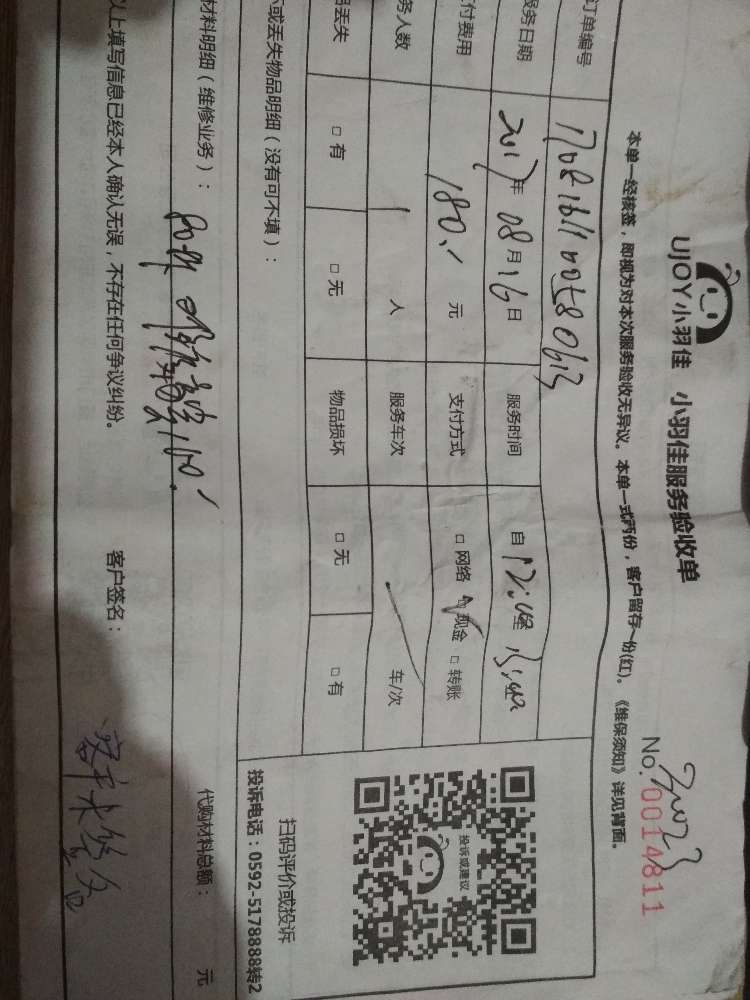 UJOY小羽佳 小羽佳服务验收单
No. 0014811
本单一经核签，即视为对本次服务验收无异议。本单一式两份，客户留存一份(红)。《维保须知》详见背面。
订单编号
服务日期 2017年 08月 16日 服务时间 自
付费用 180.- 元 支付方式 □ 网络 □ 现金 □ 转账
务人数 1 人 服务车次 车/次
丢失 □ 有 □ 无 物品损坏 □ 无 □ 有
或丢失物品明细（没有可不填）：
投诉或建议
扫码评价或投诉
投诉电话：0592-5178888转2
材料明细（维修业务）：
代购材料总额： 元
以上填写信息已经本人确认无误，不存在任何争议纠纷。 客户签名：